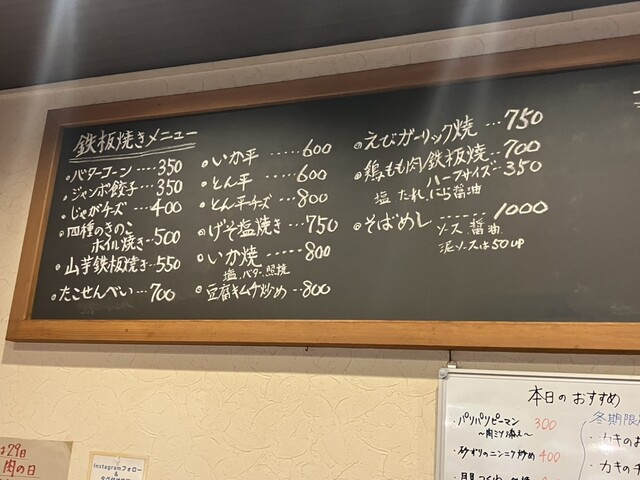 鉄板焼きメニュー
・バターコーン ‥‥350
・ジャンボ餃子 ‥‥350
・じゃがチーズ ‥‥400
・四種のきのこ
ホイル焼き‥500
・山芋鉄板焼き‥550
・たこせんべい‥700
・いか平 ‥‥‥600
・とん平 ‥‥600
・とん平チーズ‥800
・げそ塩焼き‥750
・いか焼 ‥‥‥800
塩、バター、照焼
・豆腐キムチ炒め‥800
・えびガーリック焼 ‥‥750
・鶏もも肉鉄板焼‥‥700
ハーフサイズ‥350
塩 たれ にら醤油
・そばめし -----1000
ソース 醤油
泥ソースは50UP
本日のおすすめ
・パリパリピーマン 300
〜肉ミソ添え〜
・砂ずりのニンニク炒め 400
冬期限
・カキのお
・カキの
は29日
肉の日
instagramフォロー
&